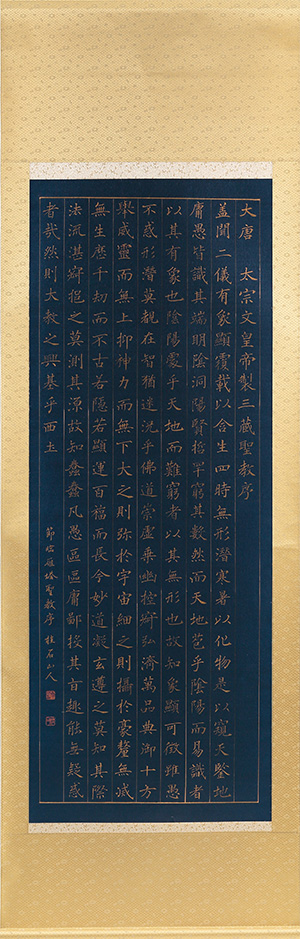 大唐 太宗文皇帝製三藏聖教序
蓋聞二儀有象顯覆載以含生四時無形潛寒暑以化物是以窺天鑒地
庸愚皆識其端明陰洞陽賢哲罕窮其數然而天地苞乎陰陽而易識者
以其有象也陰陽處乎天地而難窮者以其無形也故知象顯可徵雖愚
不惑形潛莫覩在智猶迷況乎佛道崇虛乗幽控寂弘濟萬品典御十方
舉威靈而無上抑神力而無下大之則弥於宇宙細之則攝於豪釐無滅
無生歷千劫而不古若隱若顯運百福而長今妙道凝玄遵之莫知其際
法流湛寂挹之莫測其源故知蠢蠢凡愚區區庸鄙投其旨趣能無疑惑
者哉然則大教之興基乎西土
節臨雁塔聖教序 桂石山人